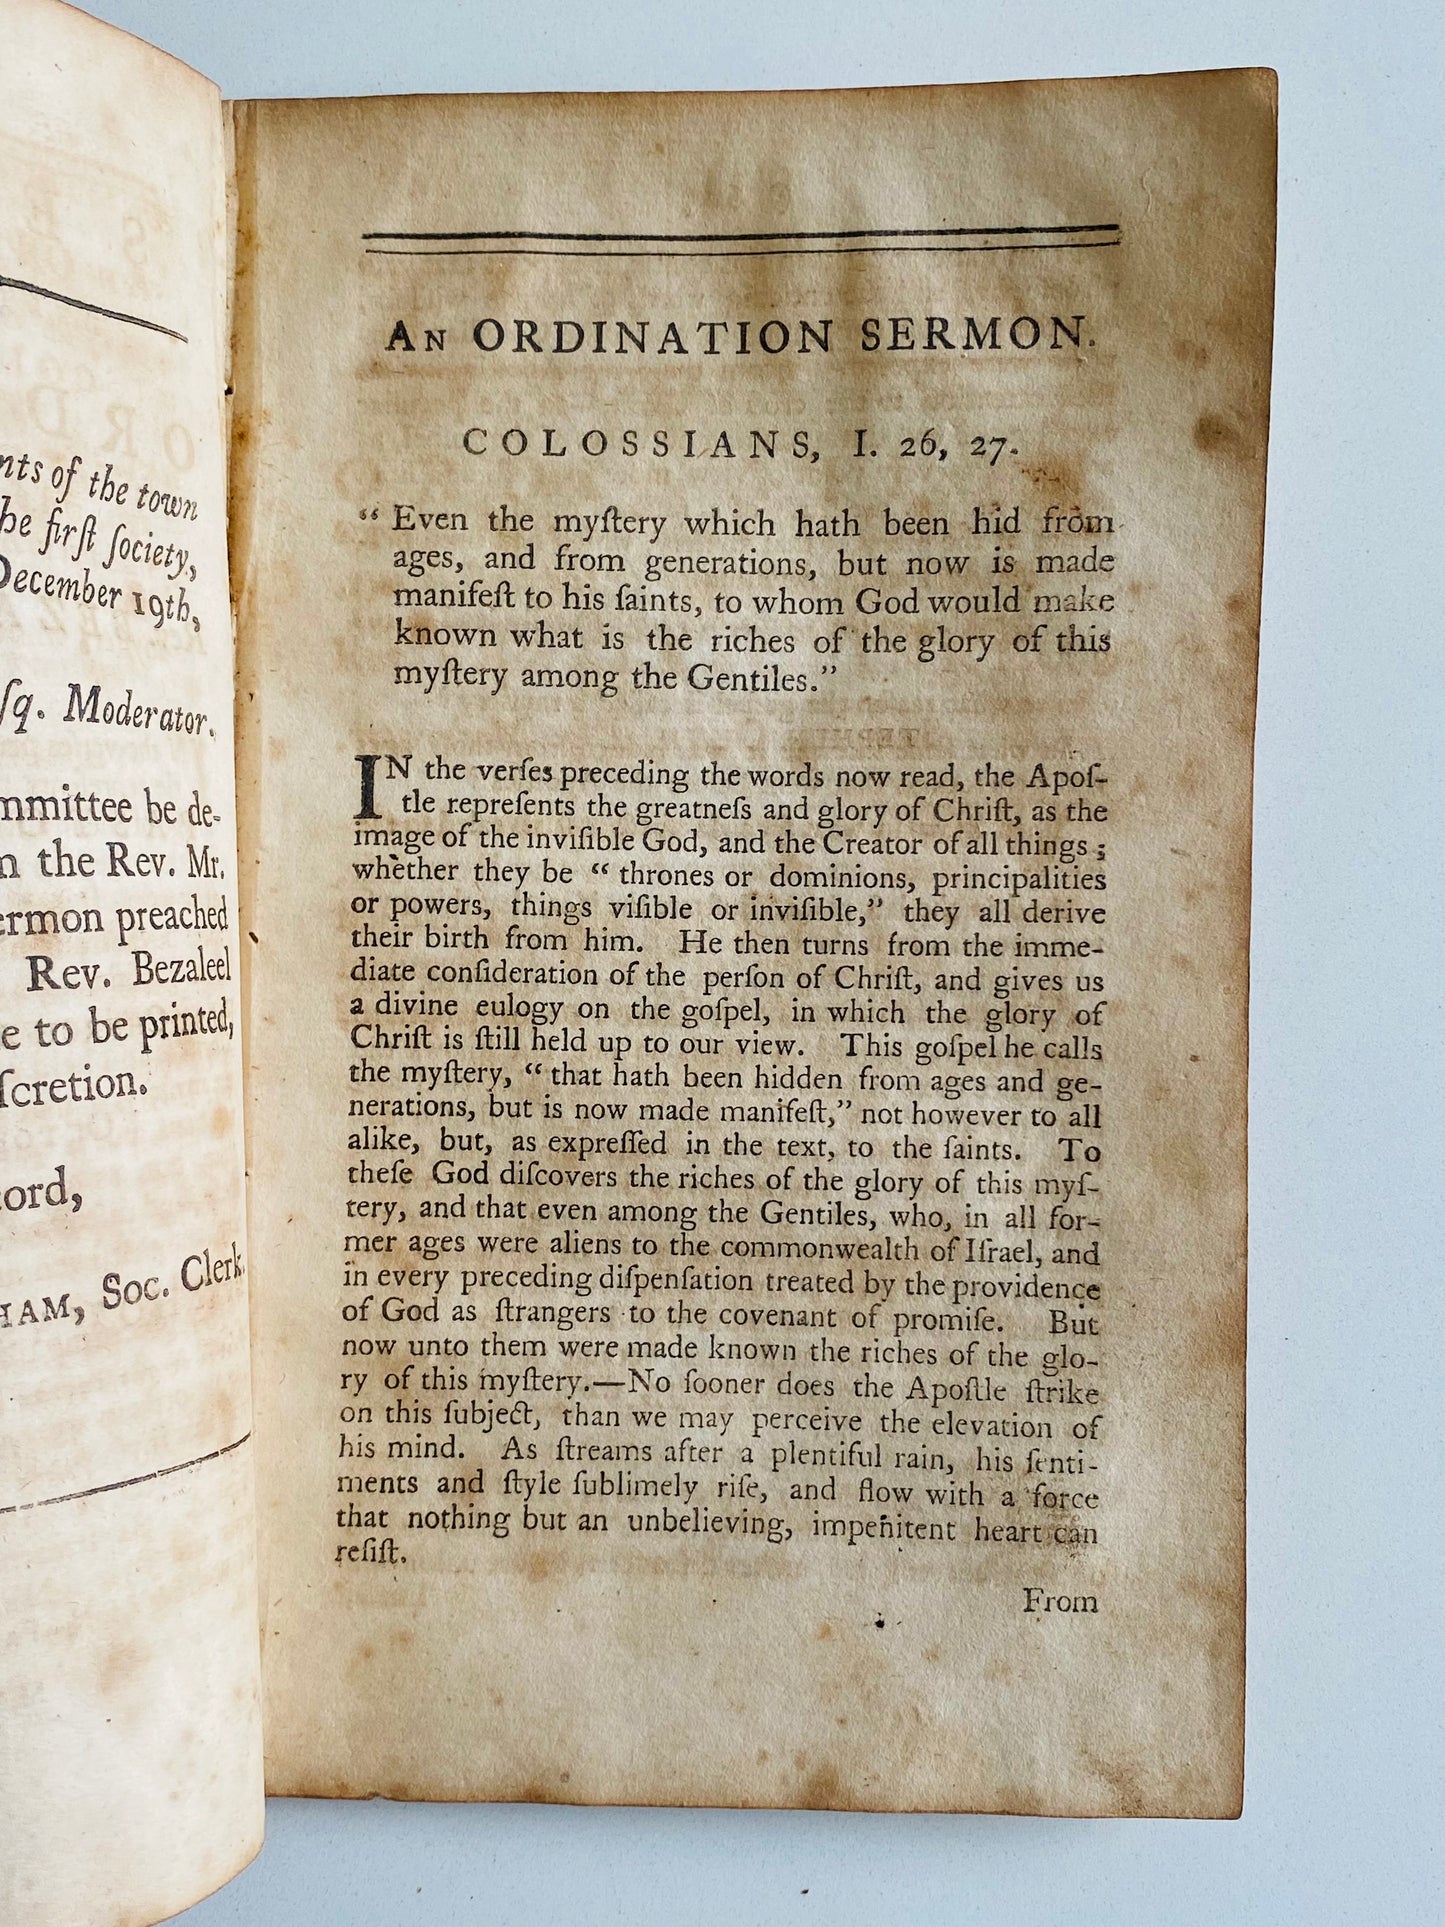 nts of the town
he firſt ſociety,
December 19th,
ſq. Moderator.
mmittee be de-
n the Rev. Mr.
ermon preached
Rev. Bezaleel
e to be printed,
ſcretion.
ord,
HAM, Soc. Clerk.
An ORDINATION SERMON.
COLOSSIANS, I. 26, 27.
“ Even the myſtery which hath been hid from
ages, and from generations, but now is made
manifeſt to his ſaints, to whom God would make
known what is the riches of the glory of this
myſtery among the Gentiles.”
IN the verſes preceding the words now read, the Apoſ-
tle repreſents the greatneſs and glory of Chriſt, as the
image of the inviſible God, and the Creator of all things ;
whether they be “ thrones or dominions, principalities
or powers, things viſible or inviſible,” they all derive
their birth from him. He then turns from the imme-
diate conſideration of the perſon of Chriſt, and gives us
a divine eulogy on the goſpel, in which the glory of
Chriſt is ſtill held up to our view. This goſpel he calls
the myſtery, “ that hath been hidden from ages and ge-
nerations, but is now made manifeſt,” not however to all
alike, but, as expreſſed in the text, to the ſaints. To
theſe God diſcovers the riches of the glory of this myſ-
tery, and that even among the Gentiles, who, in all for-
mer ages were aliens to the commonwealth of Iſrael, and
in every preceding diſpenſation treated by the providence
of God as ſtrangers to the covenant of promiſe. But
now unto them were made known the riches of the glo-
ry of this myſtery.—No ſooner does the Apoſtle ſtrike
on this ſubject, than we may perceive the elevation of
his mind. As ſtreams after a plentiful rain, his ſenti-
ments and ſtyle ſublimely riſe, and flow with a force
that nothing but an unbelieving, impenitent heart can
reſiſt.
From